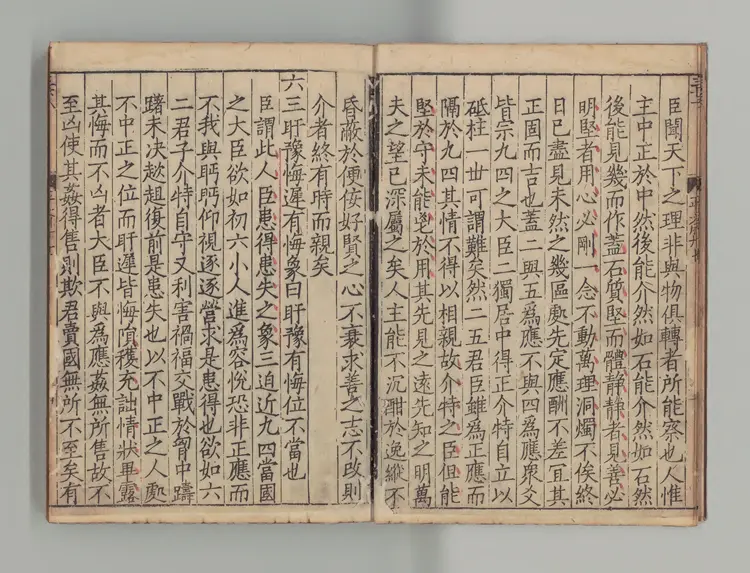 臣聞天下之理非與物俱轉者所能察也人惟
主中正於中然後能介然如石能介然如石然
後能見幾而作蓋石質堅而體静静者見善必
明堅者用心必剛一念不動萬理洞燭不俟終
日已盡見未然之幾區處先定應酬不差宜其
正固而吉也蓋二與五爲應不與四爲應衆爻
皆宗九四之大臣二獨居中得正介特自立以
砥柱一世可謂難矣然二五君臣雖爲正應而
隔於九四其情不得以相親故介特之臣但能
堅於守未能
於用其先見之遠先知之明萬
夫之望已深屬之矣人主能不沉酣於逸縱不
昏蔽於便佞好賢之心不衰求善之志不改則
介者終有時而親矣
六三盱豫悔遲有悔象曰盱豫有悔位不當也
臣謂此人臣患得患失之象三迫近九四當國
之大臣欲如初六小人進爲容悦恐非正應而
不我與盱盱仰視逐逐營求是患得也欲如六
二君子介特自守又利害禍福交戰於胷中躊
躇未決趑趄復前是患失也以不中正之人處
不中正之位而盱遲皆悔隕穫充詘情狀畢露
其悔而不凶者大臣不與爲應姦無所售故不
至凶使其姦得售則欺君賣國無所不至矣有